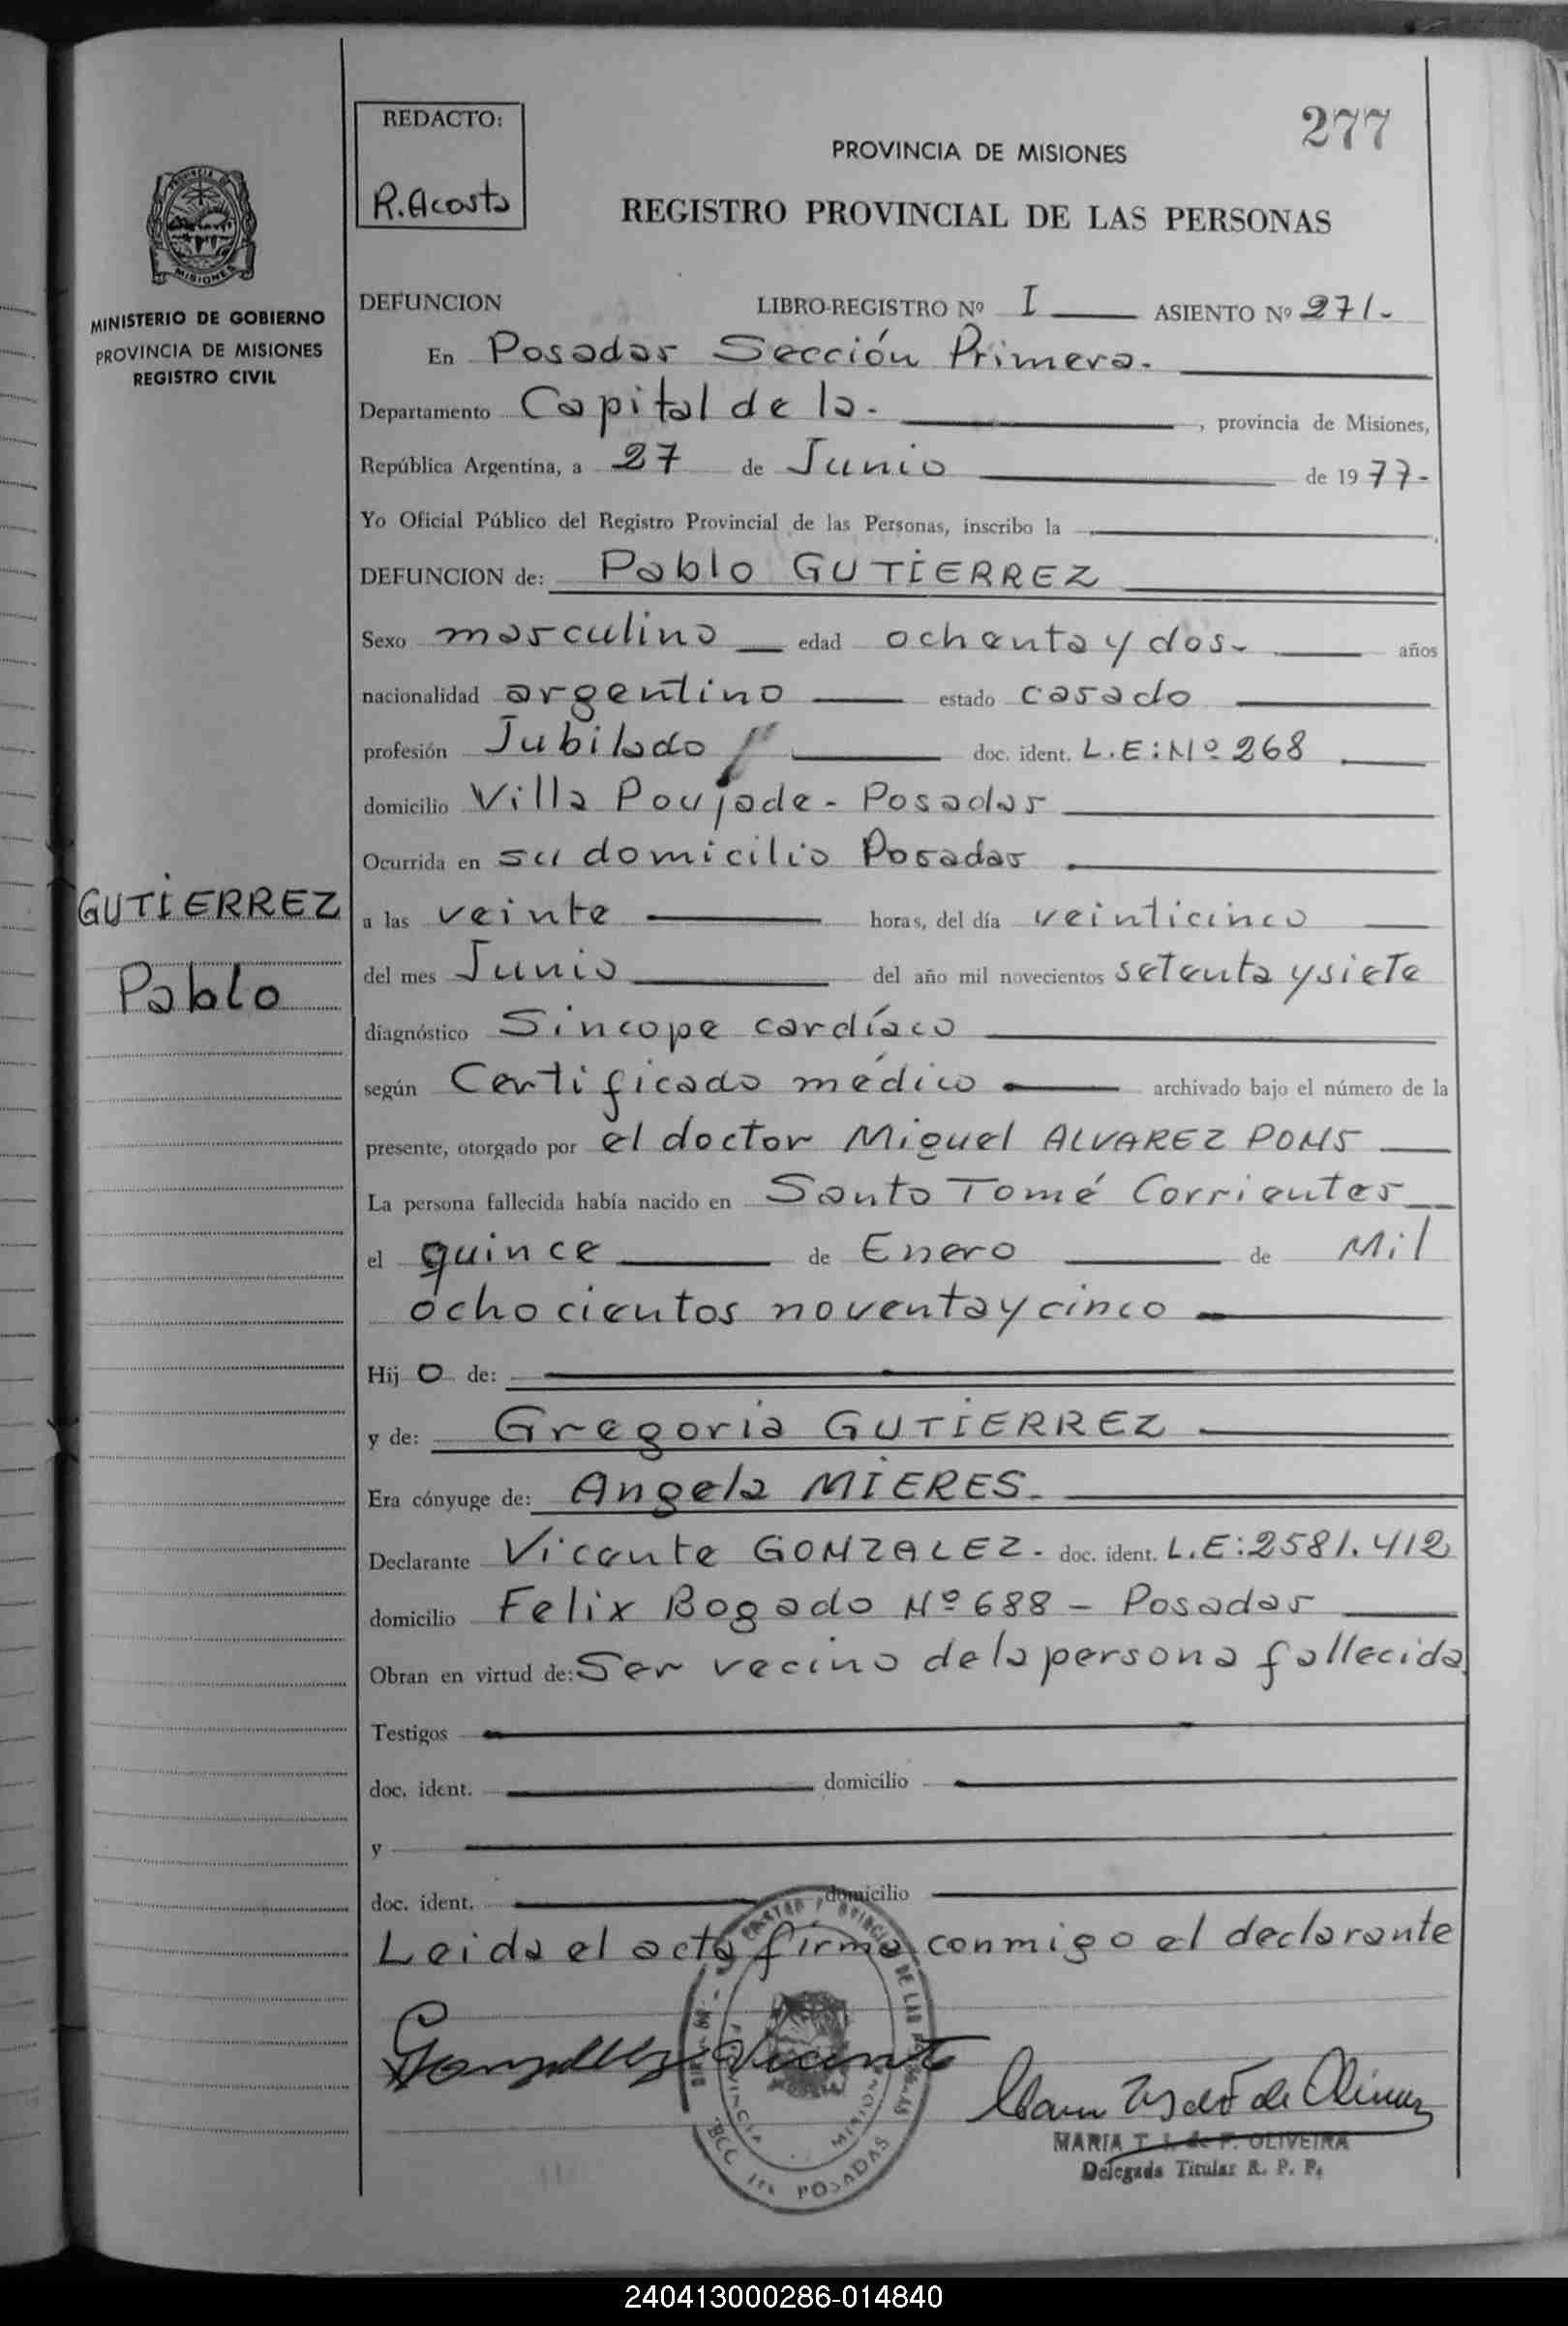 277
REDACTO:
R. Acosta
PROVINCIA DE MISIONES
REGISTRO PROVINCIAL DE LAS PERSONAS
MISIONES
MINISTERIO DE GOBIERNO
PROVINCIA DE MISIONES
REGISTRO CIVIL
DEFUNCION LIBRO-REGISTRO Nº I ASIENTO Nº 271.-
En Posadas Sección Primera.
Departamento Capital de la. , provincia de Misiones,
República Argentina, a 27 de Junio de 1977-
Yo Oficial Público del Registro Provincial de las Personas, inscribo la
DEFUNCION de: Pablo GUTIERREZ
Sexo masculino edad ochenta y dos- años
nacionalidad argentino estado casado
profesión Jubilado doc. ident. L.E: Nº 268
domicilio Villa Poujade - Posadas
Ocurrida en su domicilio Posadas
GUTIERREZ
Pablo
a las veinte horas, del día veinticinco
del mes Junio del año mil novecientos setenta y siete
diagnóstico Sincope cardíaco
según Certificado médico archivado bajo el número de la
presente, otorgado por el doctor Miguel ALVAREZ PONS
La persona fallecida había nacido en Santo Tomé Corrientes
el quince de Enero de Mil
ochocientos noventa y cinco
Hijo de:
y de: Gregoria GUTIERREZ
Era cónyuge de: Angela MIERES.
Declarante Vicente GONZALEZ- doc. ident. L.E: 2581.412
domicilio Felix Bogado Nº 688 - Posadas
Obran en virtud de: Ser vecino de la persona fallecida
Testigos
doc. ident. domicilio
y
doc. ident. domicilio
Leida el acta firma conmigo el declarante
Gonzalez Vicente
MARIA T. I. de F. OLIVEIRA
Delegada Titular R. P. P.
POSADAS
240413000286-014840